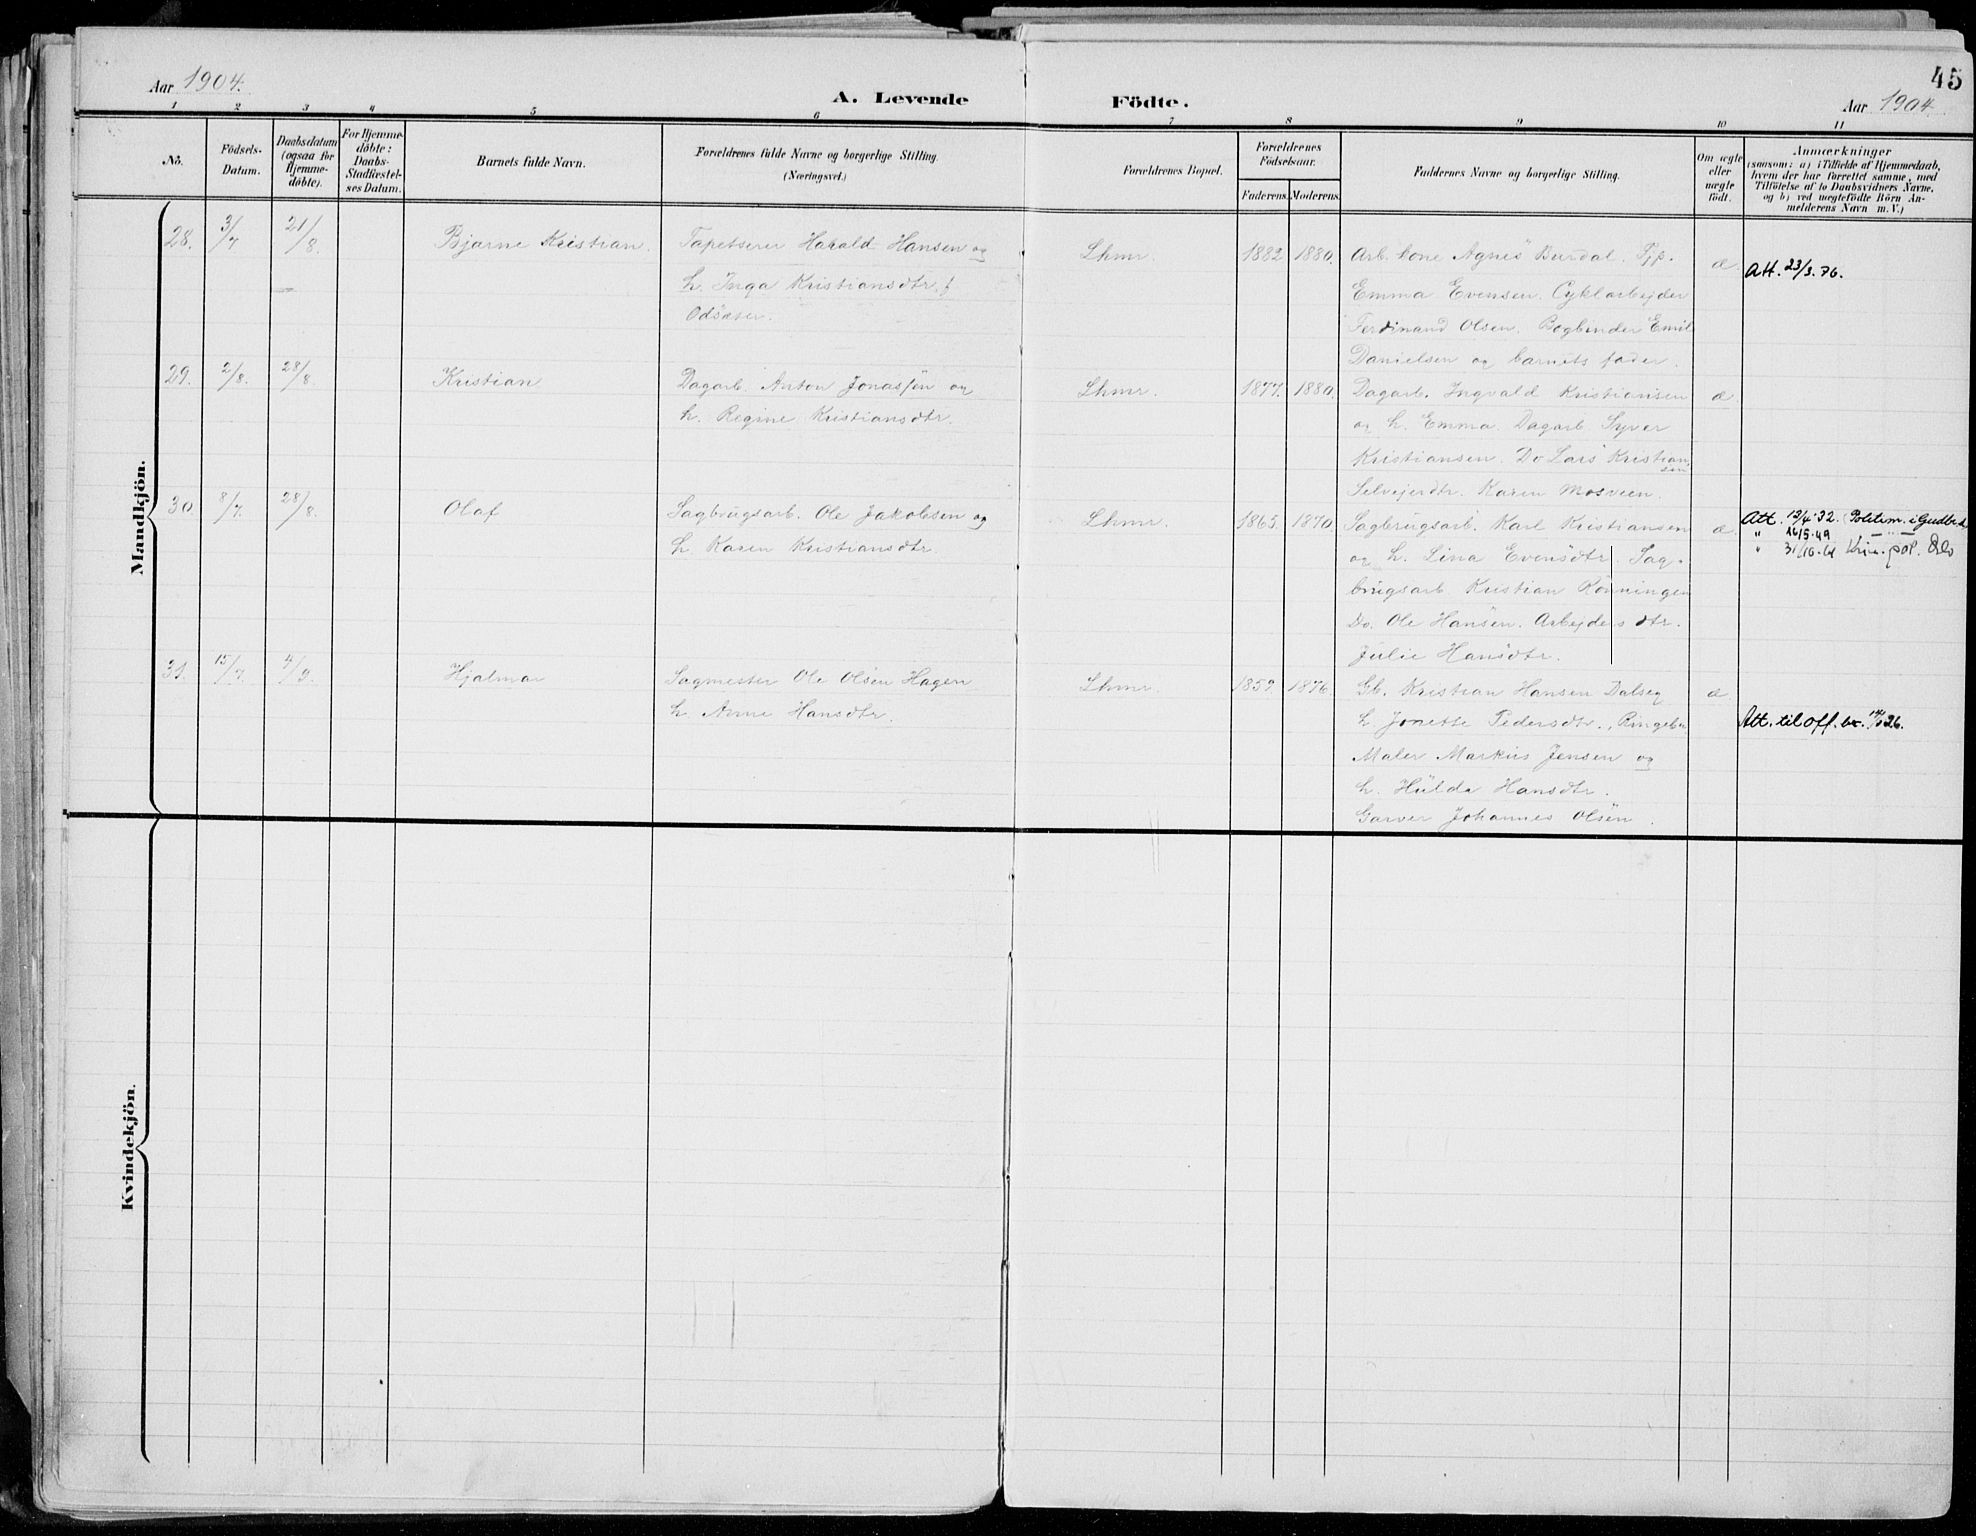 45
Aar 1904.
A. Levende Födte.
Aar 1904.
1 2 3 4 5 6 7 8 9 10 11
No.
Födsels-
Datum.
Daabsdatum
(ogsaa for
Hjemme-
döbte).
For Hjemme-
döbte:
Daabs-
Stadfæstel-
ses Datum.
Barnets fulde Navn.
Forældrenes fulde Navne og borgerlige Stilling.
(Næringsvei.)
Forældrenes Bopæl.
Forældrenes
Födselsaar.
Faderens. Moderens.
Faddernes Navne og borgerlige Stilling.
Om ægte
eller
uægte
födt.
Anmærkninger
(saasom: a) i Tilfælde af Hjemmedaab,
hvem der har forrettet samme, med
Tilföielse af to Daabsvidners Navne,
og b) ved uægtefödte Börn An-
melderens Navn m. V.)
Mandkjön.
28. 3/7 21/8. Bjarne Kristian. Tapetserer Harald Hansen og Lhmr. 1882 1880. Arb. kone Agnes Burdal. Tjp. æ Att. 23/3.76.
h. Inga Kristiansdtr. f Emma Evensen. Cyklarbejder
Odsæter. Ferdinand Olsen. Bogbinder Emil
Danielsen og barnets fader.
29. 2/8. 28/8. Kristian Dagarb. Anton Jonassen og Lhmr. 1877. 1880. Dagarb. Ingvald Kristiansen æ.
h. Regine Kristiansdtr. og h. Emma. Dagarb Syver
Kristiansen. Do Lars Kristian-
sen
Selvejerdtr. Karen Mosveen.
30. 8/7. 28/8. Olaf Sagbrugsarb. Ole Jakobsen og Lhmr. 1865. 1870. Sagbrugsarb. Karl Kristiansen æ Att. 12/4 32. Politim. i Gudbr.d.
h. Karen Kristiansdtr. og h. Lina Evensdtr. Sag- " 26/5-49 — " —
brugsarb Kristian Rönningen " 31/10-61 Krim. pol. Oslo
Do. Ole Hansen. Arbejders dtr.
Julie Hansdtr.
31. 15/7. 4/9. Hjalmar Sagmester Ole Olsen Hagen Lhmr. 1859. 1876. Gb. Kristian Hansen Dalseg æ.
h Anne Hansdtr. h. Jonette Pedersdtr., Ringebu Att. til off. br.
Maler Markus Jensen og
h. Hulda Hansdtr.
Garver Johannes Olsen.
Kvindekjön.